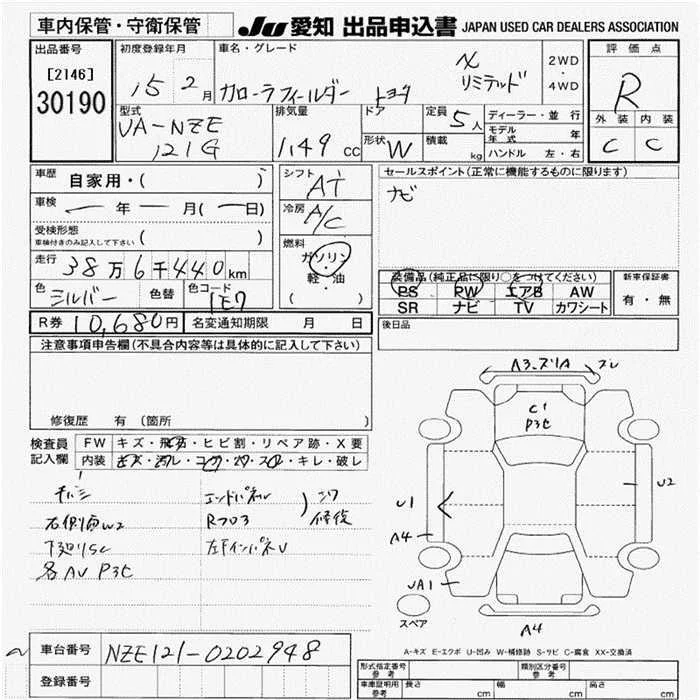 車内保管・守衛保管
JU 愛知 出品申込書 JAPAN USED CAR DEALERS ASSOCIATION
出品番号
[2146]
30190
初度登録年月
15 2月
車名・グレード
カローラフィールダー トヨタ
X
リミテッド
2WD
・
4WD
評価点
R
外装 内装
C C
型式
UA-NZE
121G
排気量
1.49 cc
ドア
形状 W
定員 5人
積載 kg
ディーラー・並行
モデル年式 年
ハンドル 左・右
車歴 自家用・( )
車検 ー年ー月(ー日)
受検形態
車検付きのみ記入して下さい ( )
走行 38万6千440km
色 シルバー 色替 色コード 1E7
シフト AT
冷房 A/C
燃料
ガソリン
・
軽・油
( )
セールスポイント(正常に機能するものに限ります)
ナビ
装備品(純正品に限り○をつけてください)
PS PW エアB AW
SR ナビ TV カワシート
新車保証書
有・無
後日品
R券 10,680円 名変通知期限 月 日
注意事項申告欄(不具合内容等は具体的に記入して下さい)
修復歴 有 (箇所 )
検査員
記入欄
FW キズ・飛石・ヒビ割・リペア跡・X要
内装 キズ・汚レ・コゲ・穴・スレ・キレ・破レ
エンドパネル
右側面W2 R フロ3 修復
下廻りSC
各AU P3C
A3.ズリA ズレ
C1
P3C
U1
U2
A4
UA1
A4
スペア
A-キズ E-エクボ U-凹み W-補修跡 S-サビ C-腐食 XX-交換済
車台番号 NZE121-0202948
登録番号
形式指定番号 参考 類別区分番号 参考
車庫証明用 参考 長さ cm 幅 cm 高さ cm